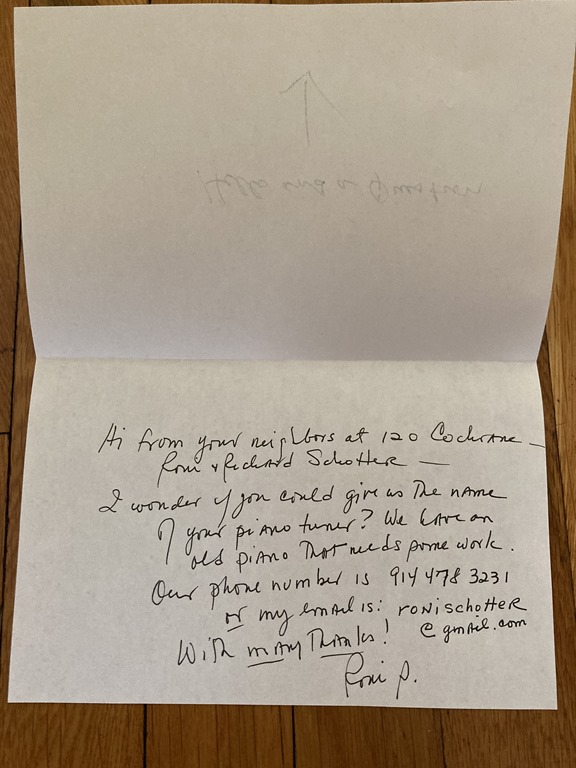 Hello and a Question
Hi from your neighbors at 120 Cochrane —
Roni & Richard Schotter —
I wonder if you could give us the name
of your piano tuner? We have an
old piano that needs some work.
Our phone number is 914 478 3231
or my email is: ronischotter
@gmail.com
With many thanks!
Roni S.